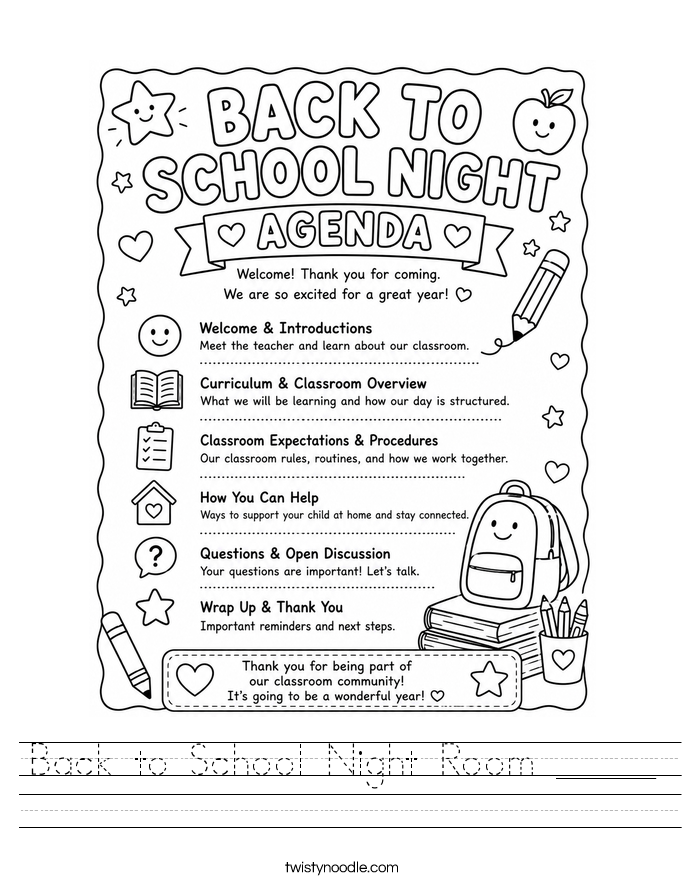 BACK TO
SCHOOL NIGHT
AGENDA
Welcome! Thank you for coming.
We are so excited for a great year!
Welcome & Introductions
Meet the teacher and learn about our classroom.
Curriculum & Classroom Overview
What we will be learning and how our day is structured.
Classroom Expectations & Procedures
Our classroom rules, routines, and how we work together.
How You Can Help
Ways to support your child at home and stay connected.
?
Questions & Open Discussion
Your questions are important! Let's talk.
Wrap Up & Thank You
Important reminders and next steps.
Thank you for being part of
our classroom community!
It's going to be a wonderful year!
Back to School Night Room ______
twistynoodle.com